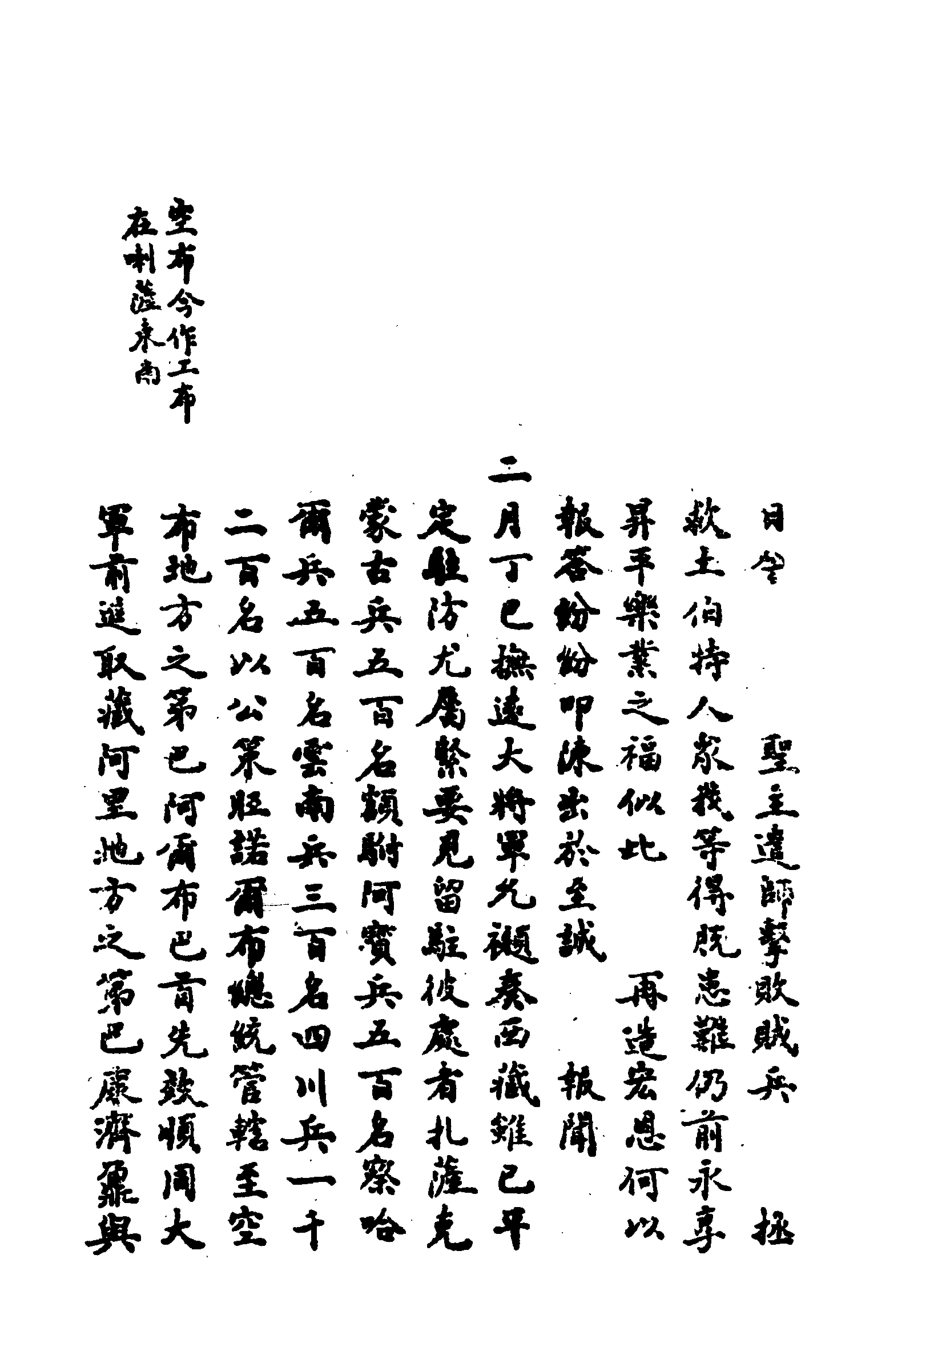 日 聖主遣師擊敗賊兵 拯
救土伯特人眾我等得脫患難仍前永享
昇平樂業之福似此 再造宏恩何以
報答紛紛叩陳出於至誠 報聞
二月丁巳撫遠大將軍允禵奏西藏雖已平
定駐防尤屬緊要見留駐彼處者扎薩克
蒙古兵五百名額駙阿寶兵五百名察哈
爾兵五百名雲南兵三百名四川兵一千
二百名以公策旺諾爾布總統管轄至空
布地方之第巴阿爾布巴首先效順同大
軍前進取藏阿里地方之第巴康濟鼐與
空布今作工布
在喇薩東南